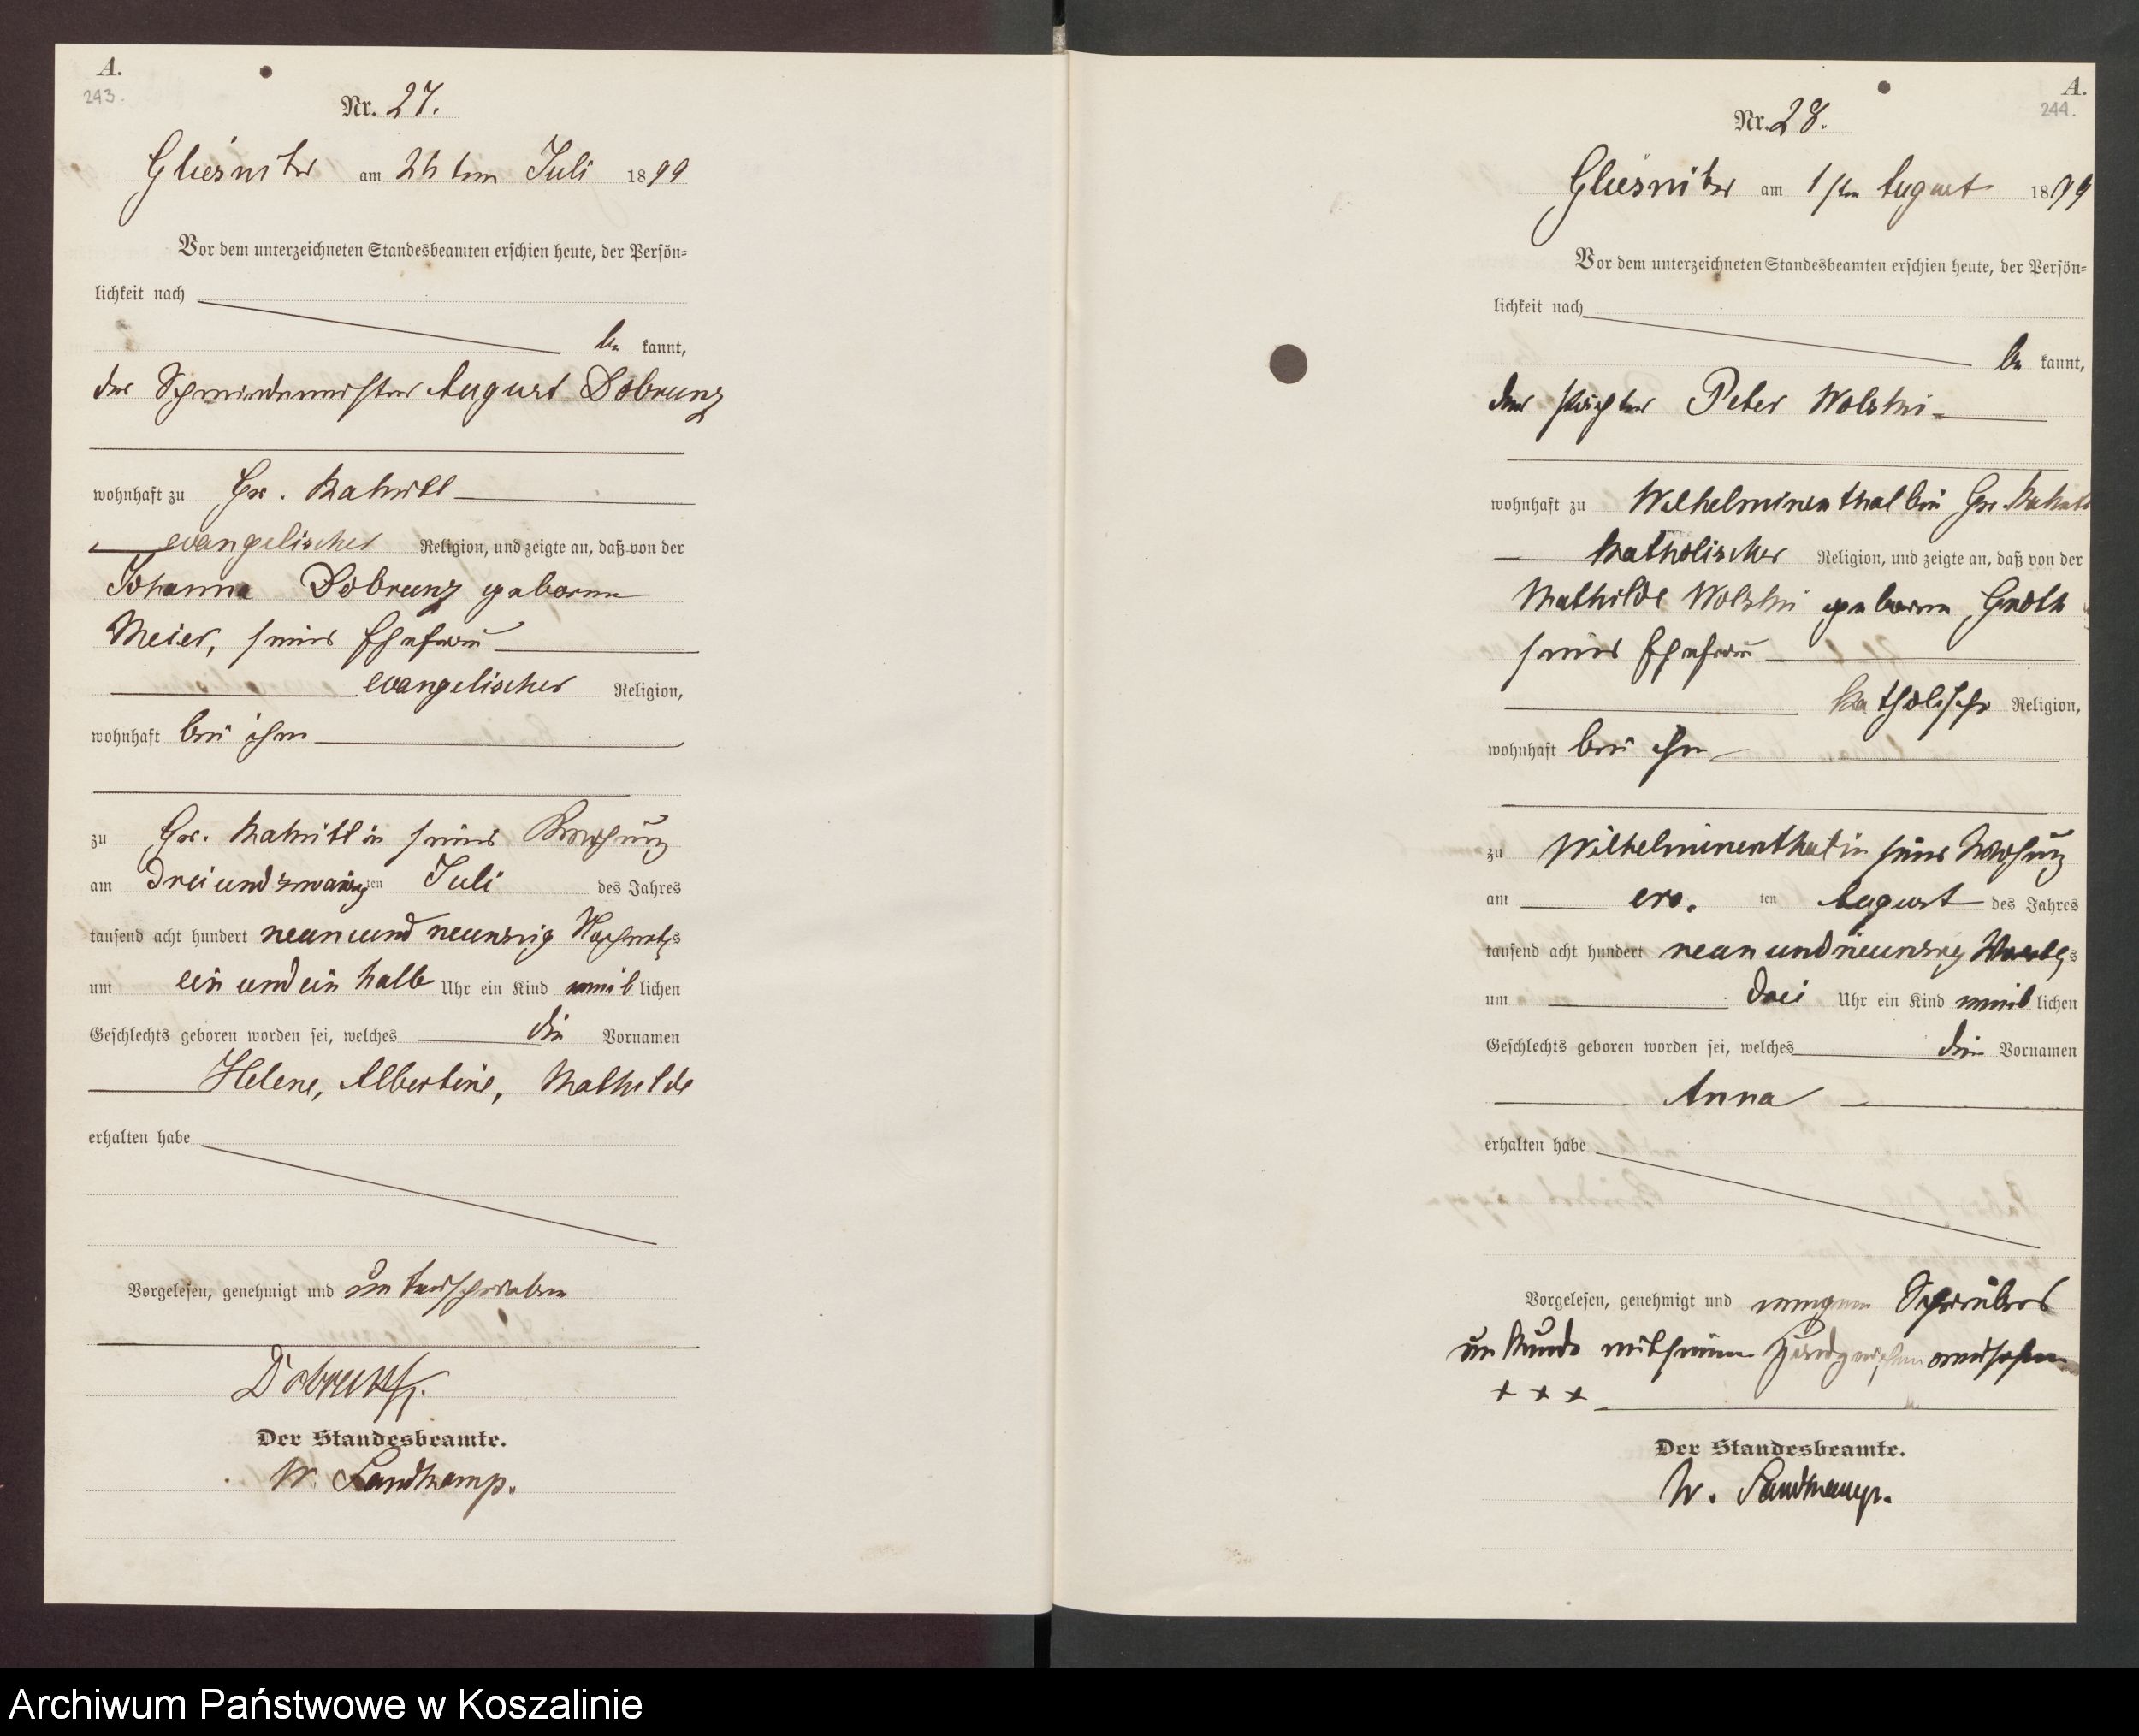 A.
243.
Nr. 27.
Gliesnitz am 26 ten Juli 1899
Vor dem unterzeichneten Standesbeamten erschien heute, der Persön=
lichkeit nach
be kannt,
der Schmiedemeister August Dobrunz
wohnhaft zu Gr. Rakitt
evangelischer Religion, und zeigte an, daß von der
Johanna Dobrunz geborene
Meier, seiner Ehefrau
evangelischer Religion,
wohnhaft bei ihm
zu Gr. Rakitt in seiner
am Dreiundzwanzigten Juli des Jahres
tausend acht hundert neunundneunzig Nachmittags
um ein und ein halb Uhr ein Kind weib lichen
Geschlechts geboren worden sei, welches die Vornamen
Helene, Albertine, Mathilde
erhalten habe
Vorgelesen, genehmigt und unterschrieben
Dobrunz.
Der Standesbeamte.
W. Landkamp.
A.
244.
Nr. 28.
Gliesnitz am 1 sten August 1899
Vor dem unterzeichneten Standesbeamten erschien heute, der Persön=
lichkeit nach
be kannt,
der Pächter Peter Wolski
wohnhaft zu Wilhelminenthal bei Gr. Rakitt
katholischer Religion, und zeigte an, daß von der
Mathilde Wolski geborene Groth
seiner Ehefrau
katholischer Religion,
wohnhaft bei ihm
zu Wilhelminenthal in seiner Wohnung
am ers. ten August des Jahres
tausend acht hundert neunundneunzig Vormittags
um drei Uhr ein Kind weib lichen
Geschlechts geboren worden sei, welches die Vornamen
Anna
erhalten habe
Vorgelesen, genehmigt und wegen Schreibens
unkunde mit seinem Handzeichen versehen
+ + +
Der Standesbeamte.
W. Landkamp.
Archiwum Państwowe w Koszalinie